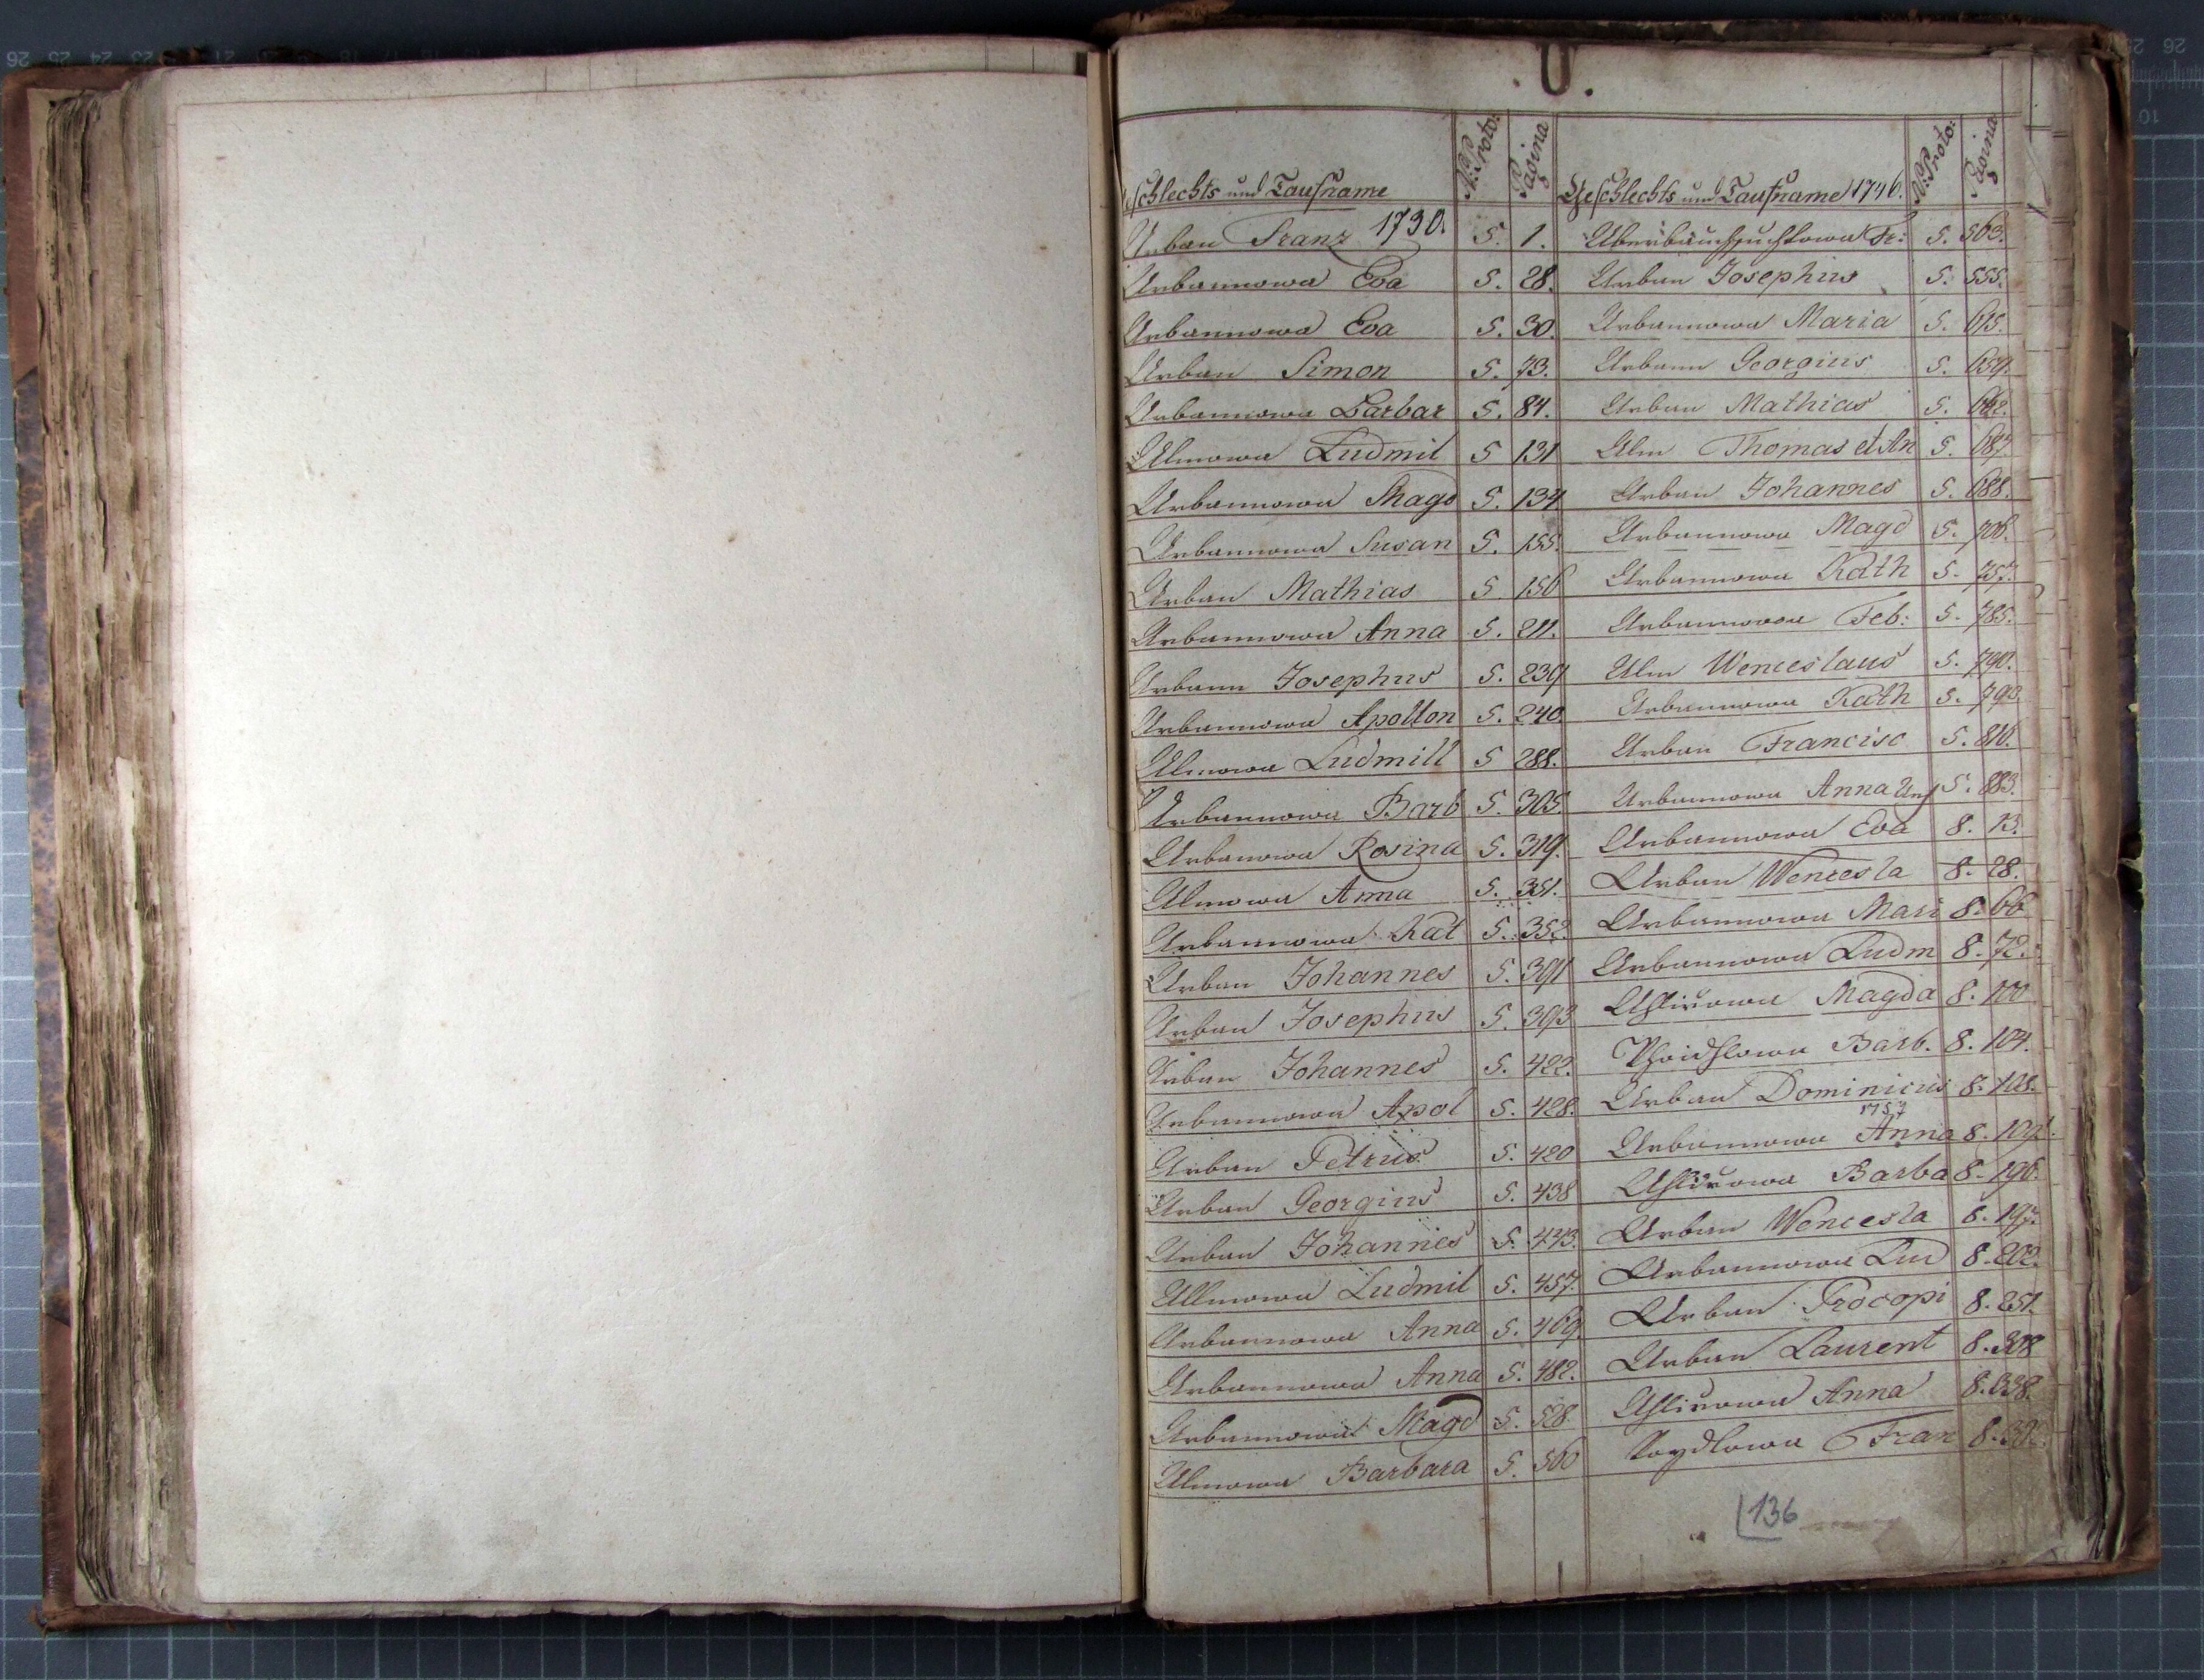 U.
Geschlechts und Taufname N: Proto: Pagina
Urban Franz 1730. 5. 1.
Urbannowa Eva 5. 28.
Urbannowa Eva 5. 30.
Urban Simon 5. 73.
Urbannowa Barbar 5. 84.
Ulmowa Ludmil 5 131
Urbannowa Magd 5. 134
Urbannowa Susan 5. 155.
Urban Mathias 5 156
Urbannowa Anna 5. 211.
Urbann Josephus 5. 239
Urbannowa Apollon 5. 240.
Ulmowa Ludmill 5 288.
Urbannowa Barb 5. 305.
Urbanowa Rosina 5. 319.
Ulmowa Anna 5. 351.
Urbannowa Kat 5. 352.
Urban Johannes 5. 391
Urban Josephus 5. 393
Urban Johannes 5. 422.
Urbannowa Apol 5. 428.
Urban Petrus 5. 420
Urban Georgius 5. 438
Urban Johannes 5. 443.
Ullmowa Ludmil 5. 457.
Urbannowa Anna 5. 469.
Urbannowa Anna 5. 482.
Urbannowa Magd 5. 528.
Ulmowa Barbara 5. 560
Geschlechts und Taufname 1746. N: Proto: Pagina
5. 563.
Urban Josephus 5. 555.
Urbannowa Maria 5. 615.
Urbann Georgius 5. 659.
Urban Mathias 5. 662.
Ulm Thomas et An 5. 687.
Urban Johannes 5. 688.
Urbannowa Magd 5. 706.
Urbannowa Kath 5. 757.
Urbannowa Feb: 5. 785.
Ulm Wenceslaus 5. 790.
Urbannowa Kath 5. 793.
Urban Francisc 5. 816.
Urbannowa Anna 5. 883.
Urbannowa Eva 8. 13.
Urban Wencesla 8. 28.
Urbannowa Mari 8. 66
Urbannowa Ludm 8. 72.
Uhlirowa Magda 8. 100
Barb. 8. 104.
Urban Dominicus 8. 108.
1757
Urbannowa Anna 8.
Uhlirowa Barba 8. 196.
Urban Wencesla 8. 197.
Urbannowa Lud 8. 202.
Urban Procopi 8. 251.
Urban Laurent 8. 308
Uhlirowa Anna 8.
Fran 8.
136